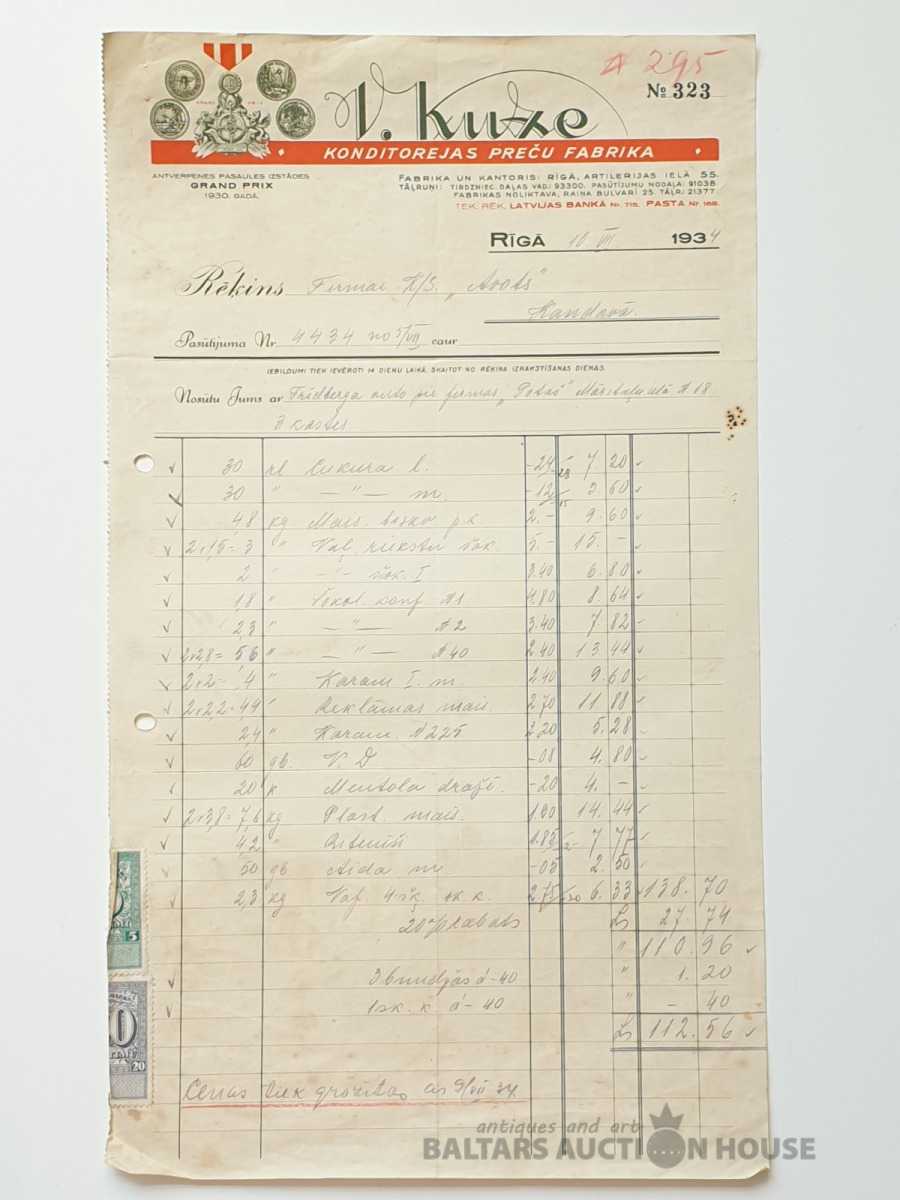 # 295
№ 323
GRAND PRIX
V. Kuze
KONDITOREJAS PREČU FABRIKA
ANTVERPENES PASAULES IZSTĀDES
GRAND PRIX
1930. GADĀ.
FABRIKA UN KANTORIS: RĪGĀ, ARTILERIJAS IELĀ 55.
TĀLRUŅI: TIRDZNIEC. DAĻAS VAD.: 93300, PASŪTĪJUMU NODAĻA: 91038.
FABRIKAS NOLIKTAVA, RAIŅA BULVARĪ 25. TĀLR.: 21377
TEK. RĒĶ. LATVIJAS BANKĀ Nr. 715. PASTA Nr. 188.
RĪGĀ 10. VII. 1934
Rēķins Firmai K/S. „Avots"
Kandavā.
Pasūtījuma Nr. 4434 no 5/VII caur
IEBILDUMI TIEK IEVĒROTI 14 DIENU LAIKĀ, SKAITOT NO RĒĶINA IZRAKSTĪŠANAS DIENAS.
Nosūtu Jums ar Fridberga auto pie firmas „Potaš" Mārstaļu ielā # 18.
3 kastes
30 Cukura l. -24 7 20
30 " —"— m -12 3.60
4,8 kg Mais. bisko p.k 2.- 9.60
2×1,5=3 " Vaļ. riekstu šok. 5.- 15.-
2 " —"— šok. I 3.40 6.80
1,8 " Šokol. konf #1 4.80 8.64
2,3 " —"— #2 3.40 7 82
2×2,8=5,6 " —"— #40 2.40 13.44
2×2=4 " Karam I. m. 2.40 9.60
2×2,2=4,4 " Reklāmas mais. 2 70 11.88
2,4 " Karam. #225 2.20 5.28
60 gb. V. D -08 4.80
20 k Mentola dražē. -20 4.-
2×3,8=7,6 kg Plast. mais. 1.90 14.44
4,2 " Ritenīši 1.85 7 77
50 gb Aida m. -05 2.50
2,3 kg Vaf. 4 šķ. šk. k. 2 75 6.33 138.70
20% rabats Ls 27.74
" 110.96
3 bundžas á -40 " 1.20
1 šk. k. á -40 " - 40
Ls 112.56
Cenas tiek grozītas 9/VII 34.
5
20
antiques and art
BALTARS AUCTION HOUSE